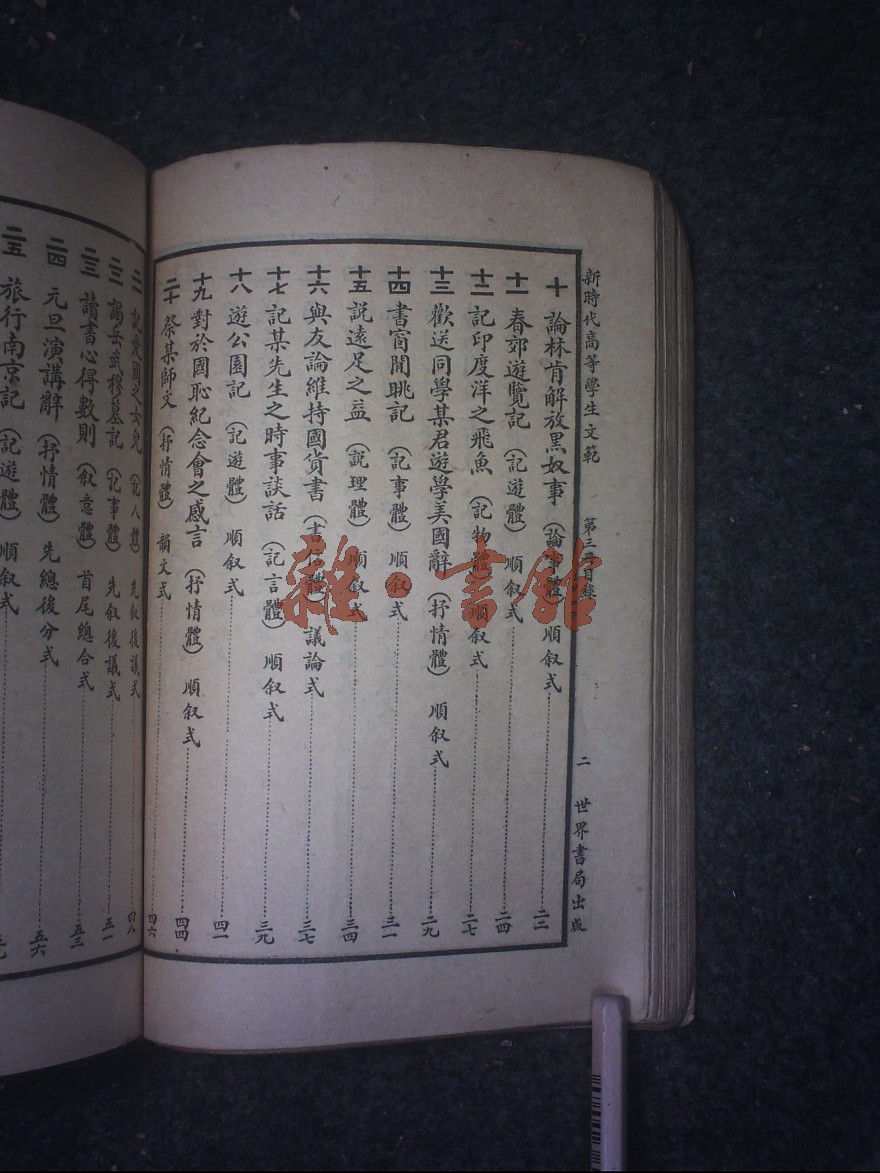 新時代高等學生文範 第三冊目錄 二 世界書局出版
十 論林肯解放黑奴事 (論事體) 順叙式 二二
十一 春郊遊覽記 (記遊體) 順叙式 二四
十二 記印度洋之飛魚 (記物體) 順叙式 二七
十三 歡送同學某君遊學美國辭 (抒情體) 順叙式 二九
十四 書窗閒眺記 (記事體) 順叙式 三一
十五 説遠足之益 (説理體) 順叙式 三四
十六 與友論維持國貨書 (書信體) 議論式 三七
十七 記某先生之時事談話 (記言體) 順叙式 三九
十八 遊公園記 (記遊體) 順叙式 四一
十九 對於國恥紀念會之感言 (抒情體) 順叙式 四四
二十 祭某師文 (抒情體) 韻文式 四六
二一 愛國之女兒 (記人體) 先叙後議式 四八
二二 謁岳武穆墓記 (記事體) 先叙後議式 五一
二三 讀書心得數則 (叙意體) 首尾總合式 五三
二四 元旦演講辭 (抒情體) 先總後分式 五六
二五 旅行南京記 (記遊體) 順叙式
雜·書館